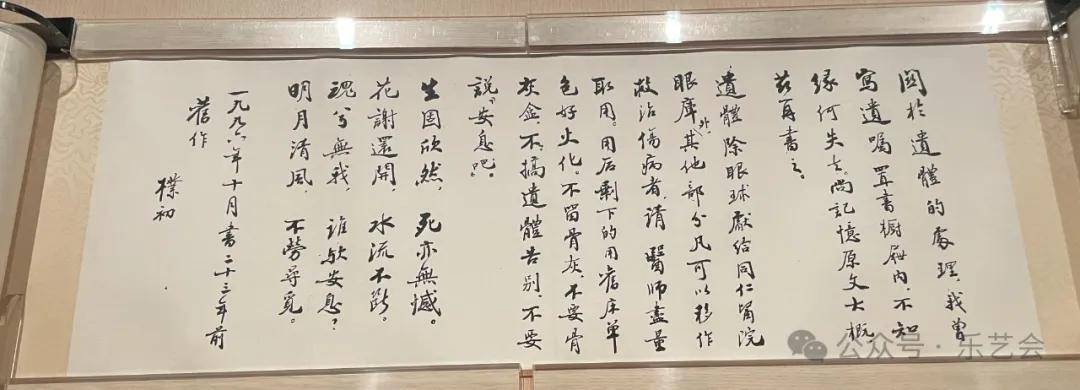 關於遺體的處理，我曾
寫遺囑置書櫥屜内，不知
緣何失去。尚記憶原文大概，
兹再書之。
遺體除眼球獻給同仁醫院
眼庫外，其他部分凡可以移作
救治傷病者，請醫師盡量
取用。用后剩下的用舊床單
包好火化。不留骨灰，不要骨
灰盒，不搞遺體告别，不要
說“安息吧”。
生固欣然，死亦無憾。
花謝還開，水流不斷。
我兮無我，誰歟安息？
明月清風，不勞尋覓。
一九九六年十月書二十三年前
舊作
樸初
公众号·乐艺会